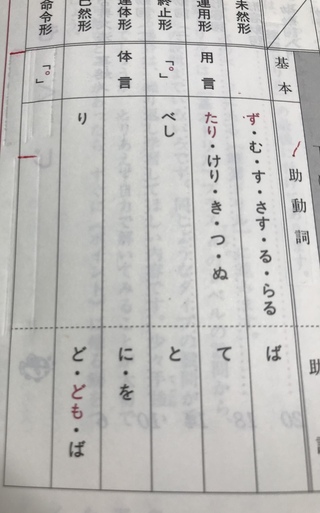 基本
助動詞
助
未然形
ず・む・す・さす・る・らる
ば
連用形
用言
たり・けり・き・つ・ぬ
て
終止形
「。」
べし
と
連体形
体言
に・を
已然形
り
ど・ども・ば
命令形
「。」